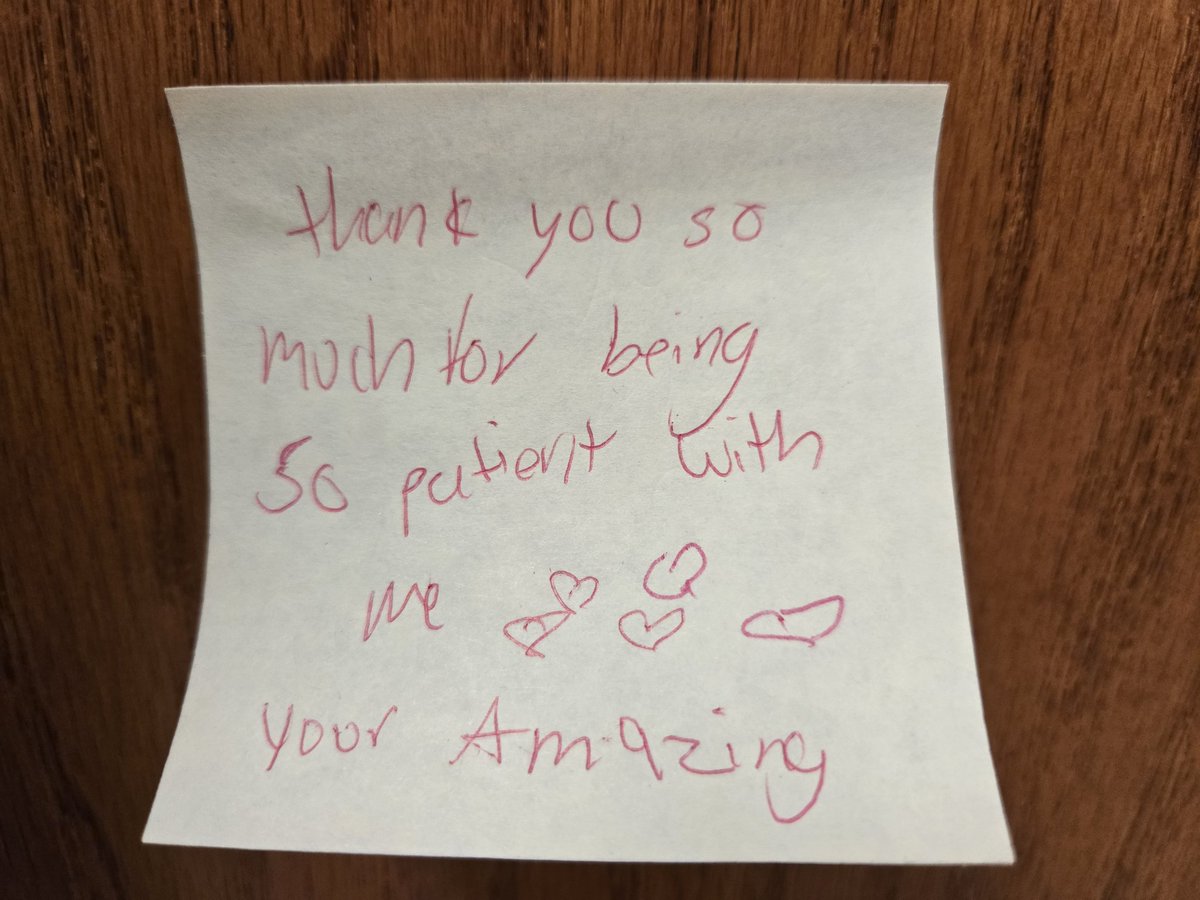 thank you so
much for being
so patient with
me
your Amazing